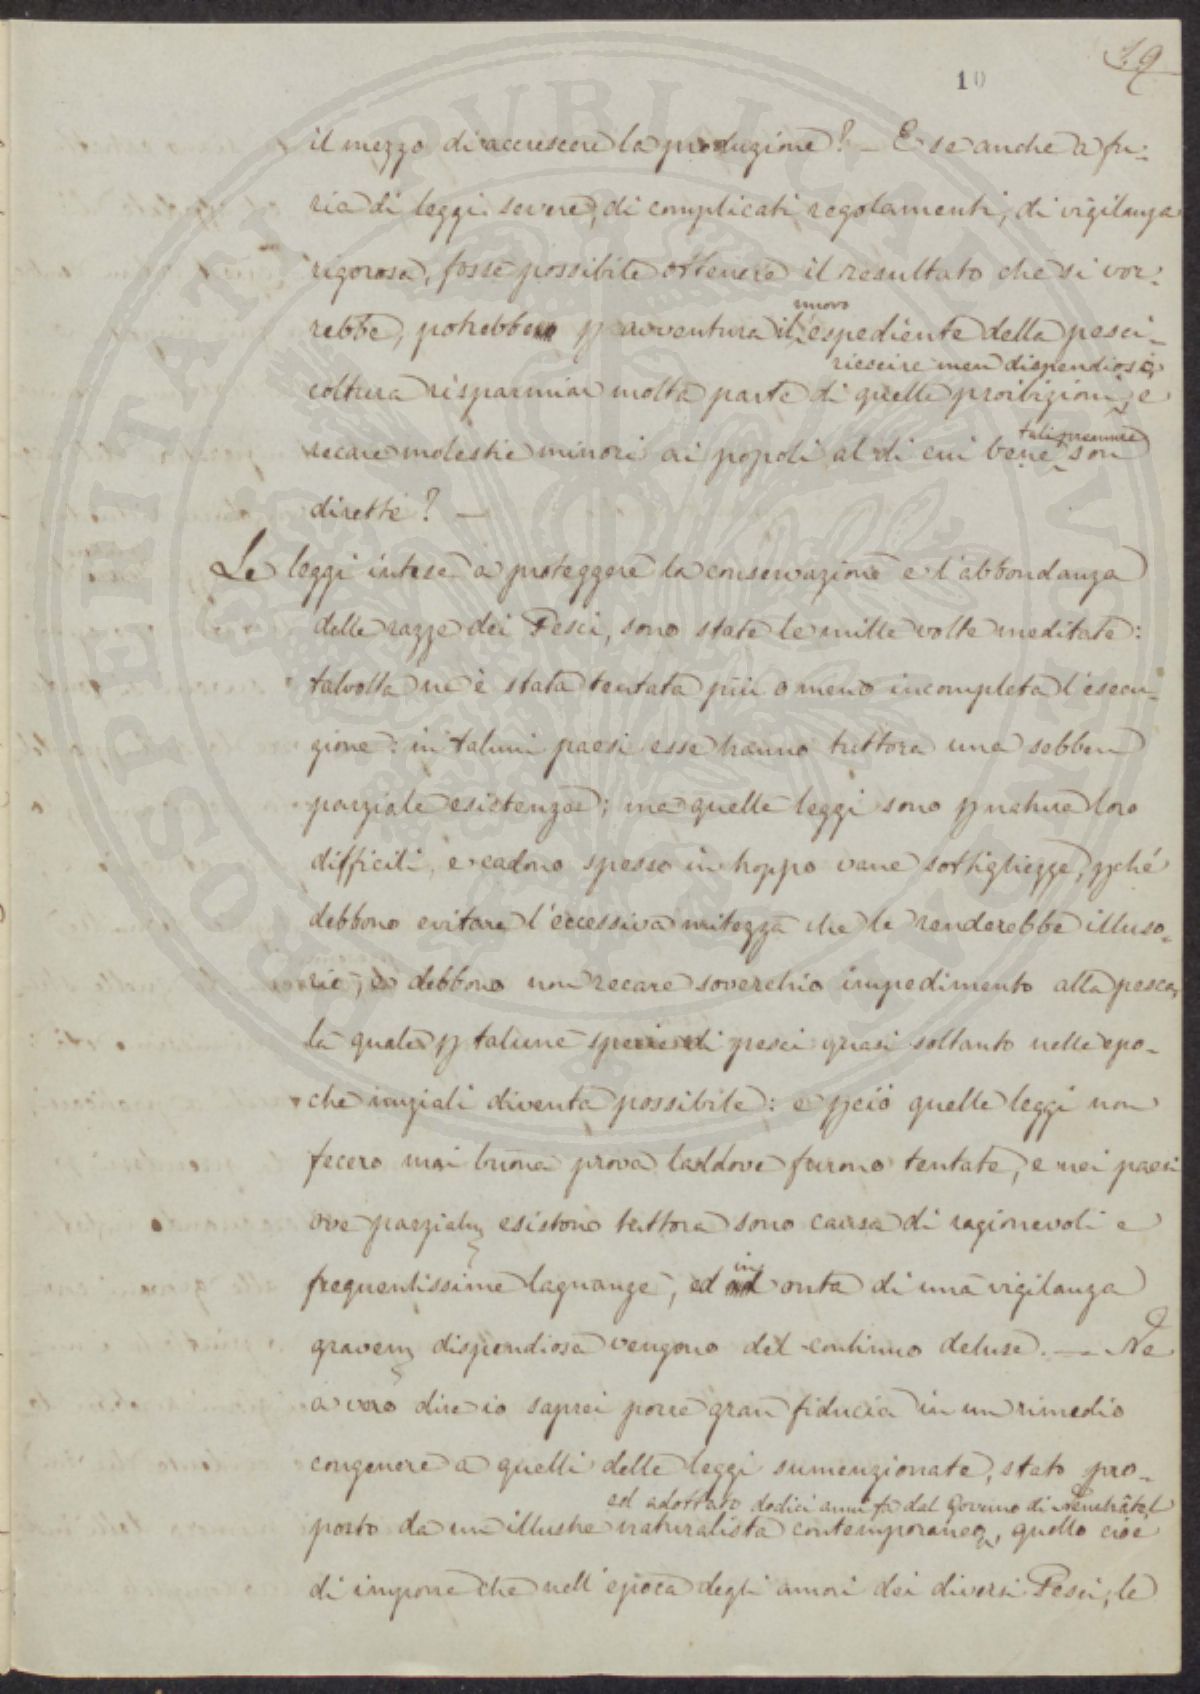 19
10
il mezzo di accrescere la produzione? — E se anche a fu-
ria di leggi severe, di complicati regolamenti, di vigilanza
rigorosa, fosse possibile ottenere il resultato che si vor-
nuovo
rebbe, potrebbe p avventura il espediente della pesci-
riescire men dispendioso,
coltura risparmiar molta parte di quelle proibizioni, e
tali premure
recare molestie minori ai popoli al di cui bene son
dirette? —
Le leggi intese a proteggere la conservazione e l'abbondanza
delle razze dei Pesci, sono state le mille volte meditate:
talvolta ne è stata tentata più o meno incompleta l'esecu-
zione: in taluni paesi esse hanno tuttora una sebben
parziale esistenza; ma quelle leggi sono p natura loro
difficili, e cadono spesso in troppo vane sottigliezze, pché
debbono evitare l'eccessiva mitezza che le renderebbe illuso-
rie, e debbono non recare soverchio impedimento alla pesca,
la quale p talune specie di pesci quasi soltanto nelle epo-
che inziali diventa possibile: e pciò quelle leggi non
fecero mai buona prova laddove furono tentate, e nei paesi
ove parzialm esistono tuttora sono causa di ragionevoli e
in
frequentissime lagnanze, ed onta di una vigilanza
gravem dispendiosa vengono del continuo deluse. — Ne
a vero dire io saprei porre gran fiducia in un rimedio
congenere a quelli delle leggi sumenzionate, stato pro-
ed adottato dodici anni fa dal Governo di Neuchâtel
posto da un illustre naturalista contemporaneo, quello cioè
di imporre che nell'epoca degli amori dei diversi Pesci, le
PROSPERITATI PVBLICAE